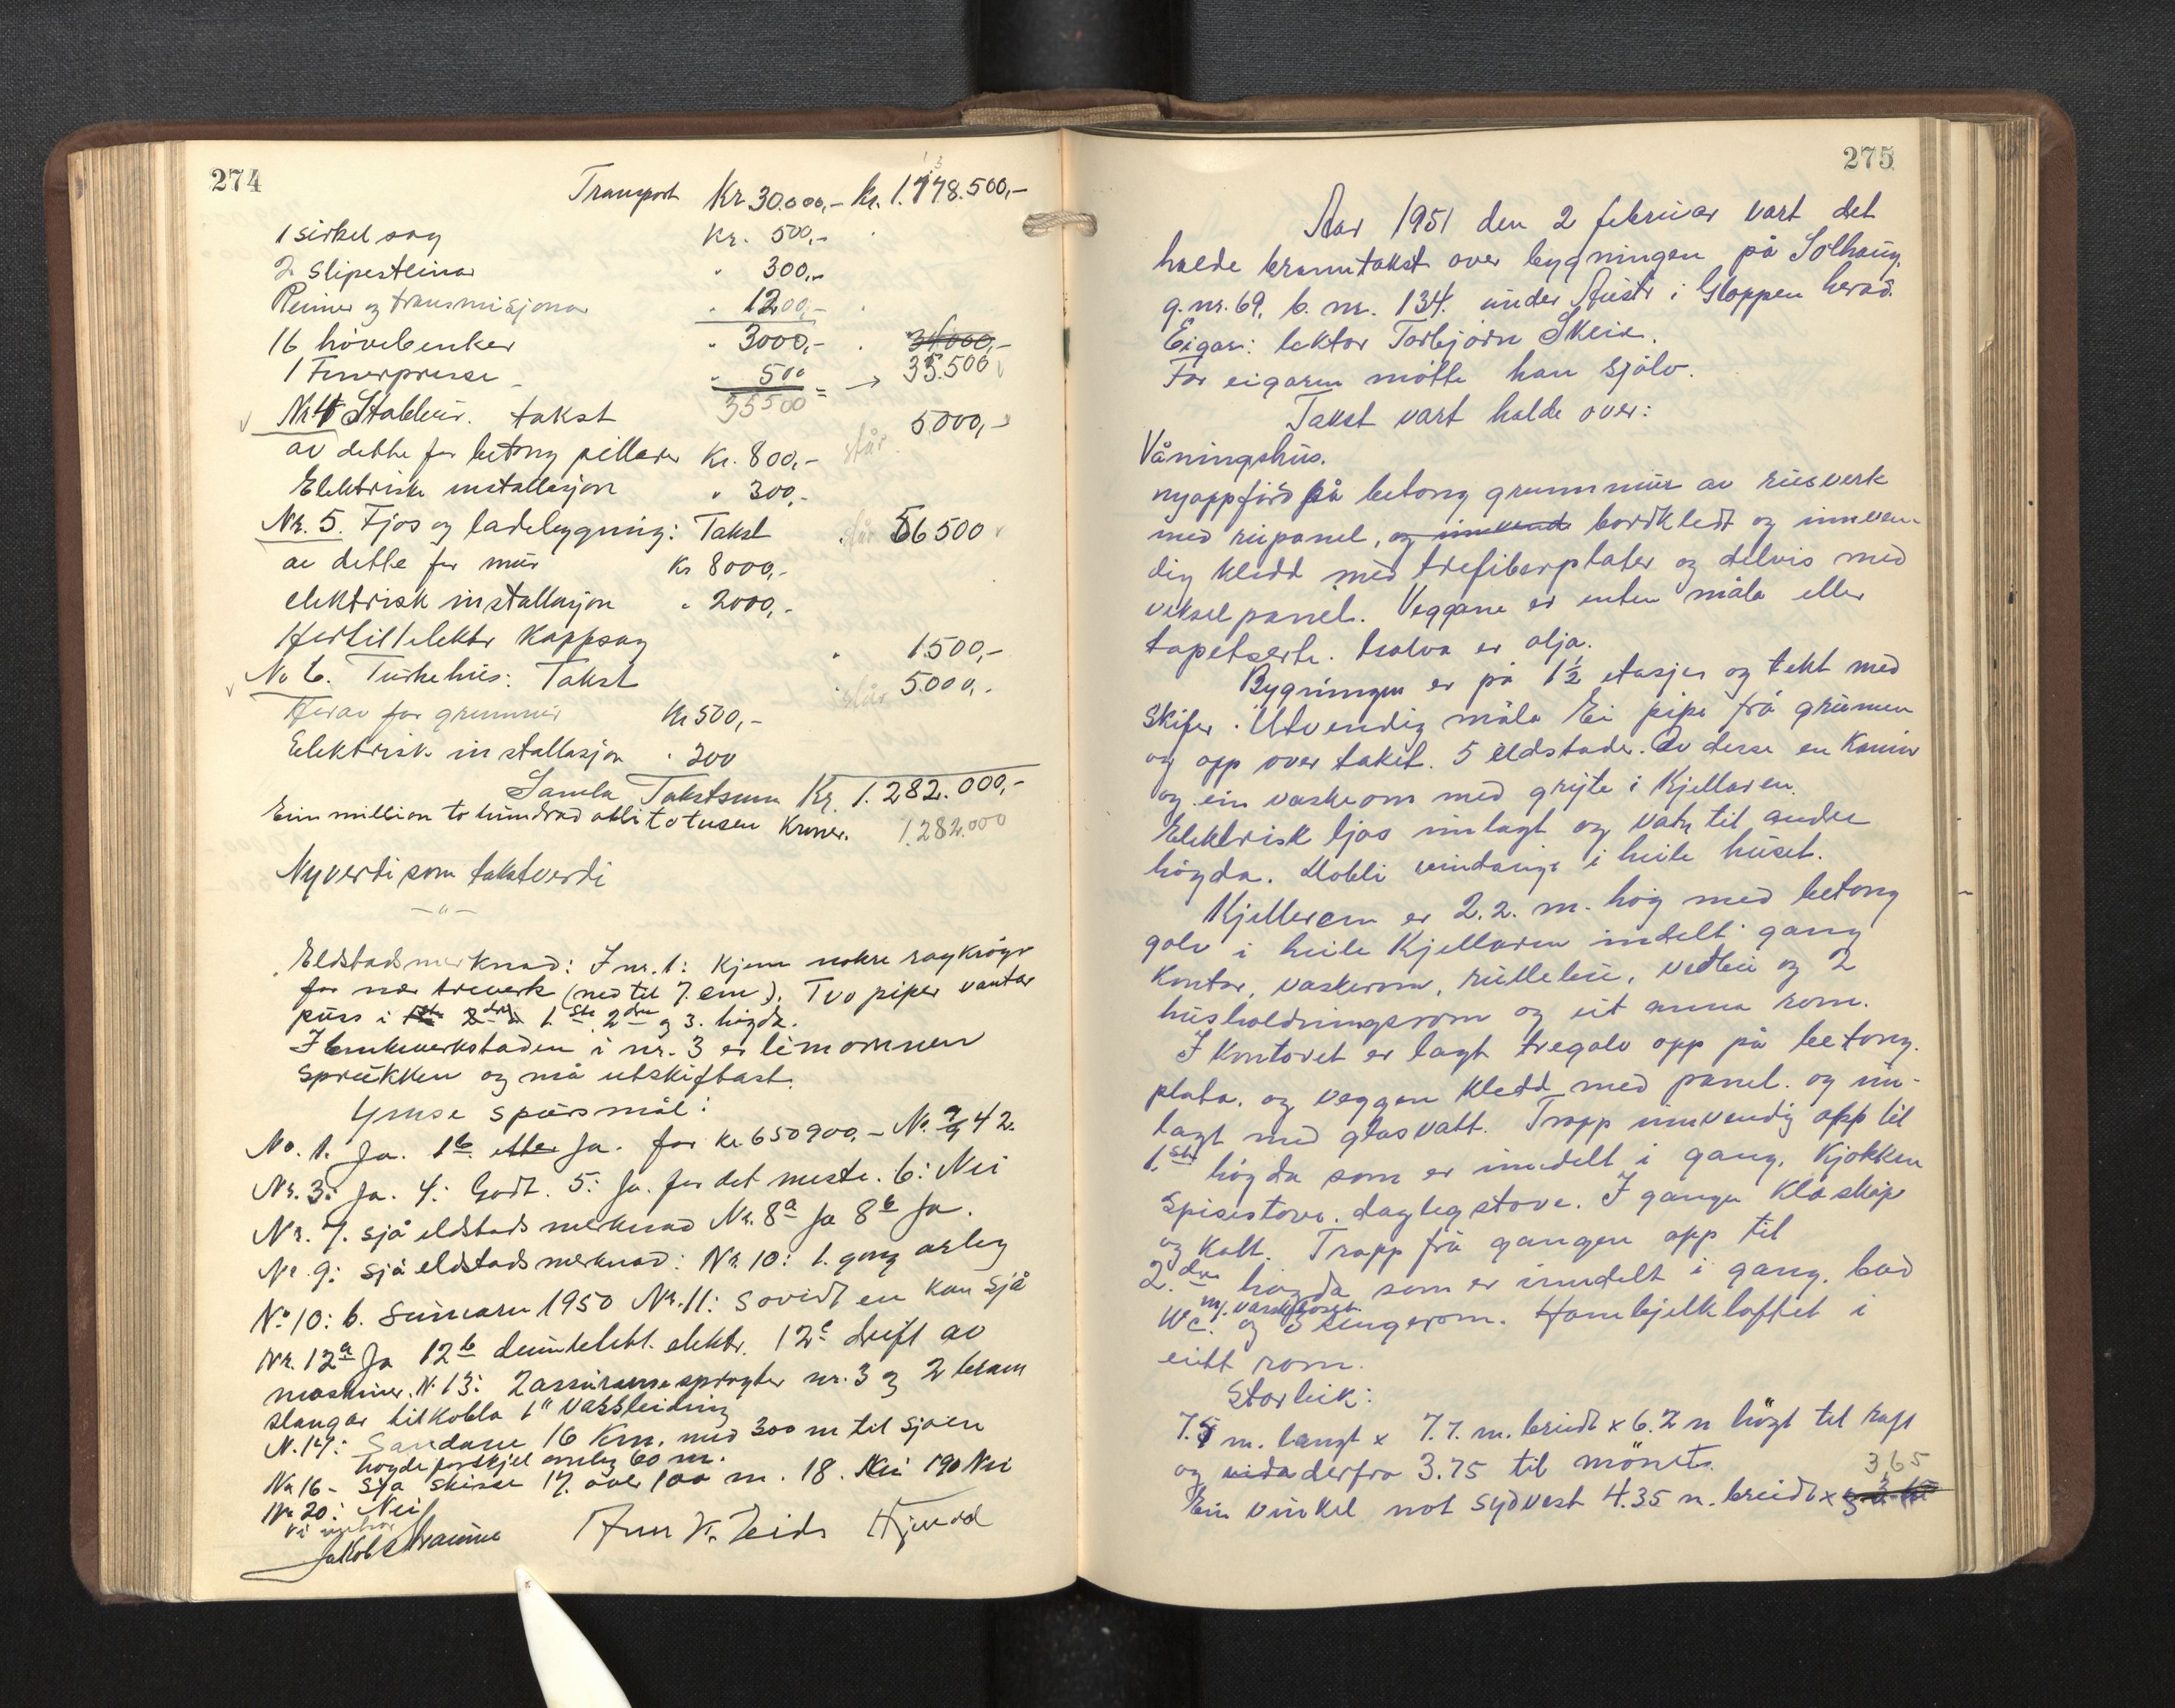 274
Transport Kr 30.000,- kr. 1.178.500,-
1 sirkel sag Kr. 500,-
2 Slipesteinar " 300,-
Reimer og transmisjonar " 1200,-
16 hövelbenker " 3000,- 34000,-
1 Finerpresse " 500 = → 35.500
35500
Nr 4 Stabbur. takst 5000,-
av dette for betong pillarer Kr. 800,- står
Elektriske installasjon " 300,-
Nr. 5. Fjos og ladebygning: Takst står 56 500
av dette for mur Kr 8000,-
elektrisk installasjon " 2000,-
Hertil 1 elektr Kappsag " 1500,-
No 6. Turkehus: Takst står 5.000,-
Herav for grunnmur Kr 500,-
Elektrisk installasjon " 200
Samla Takstsum Kr. 1.282.000,-
Ein million to hundrad ottito tusen Kroner. 1.282.000
Nyverdi som takstverdi
— " —
Eldstadsmerknad: I nr. 1: Kjem nokre røykrøyr
for nær treverk (ned til 7. cm). Tvo piper vantar
puss i 1ste 2dre 1.ste 2dre og 3. högda.
I benkeverkstaden i nr. 3 er limomnen
sprukken og må utskiftast.
Ymse spursmål:
No. 1. Ja. 1b. etter Ja. for kr. 650900,- No. 2/9 42.
Nr. 3: Ja. 4: Godt. 5: Ja. for det meste. 6: Nei
Nr. 7. sjå eldstadsmerknad Nr. 8a Ja 8b Ja.
Nr 9: sjå eldstadsmerknad: Nr. 10: 1. gong årleg
No 10: b. Sumaren 1950 Nr. 11: Sovidt en kan sjå
Nr. 12a Ja 12b elektr. 12c drift av
maskiner. N. 13: 2 assuransesprøyter nr. 3 og 2 brann
slangar tilkobla 1" vassleidning
N. 14: Sandane 16 Km. med 300 m til sjøen
högdeforskjel omlag 60 m.
Nr 16 - Sjå skisse 17. over 100 m. 18. Nei 19. Nei
Nr 20: Nei
Jakob Straume
275
Aar 1951 den 2 februar vart det
halde branntakst over bygningen på Solhaug,
g.nr. 69, b. nr. 134. under Austr i Gloppen herad.
Eigar: lektor Torbjörn Skeie.
For eigaren mötte han sjölv.
Takst vart halde over:
Våningshus.
nyoppförd på betong grunnmur av reisverk
med rupanel, og innvend bordkledt og innven-
dig kledd med trefiberplater og delvis med
veksel panel. Veggane er enten måla eller
tapetserte. tralva er olja.
Bygningen er på 1½ etasjer og tekt med
Skifer. Utvendig måla Ei pipe frå grunnen
og opp over taket. 5 eldstader. Av desse en Kamin
og ein vaskeomn med gryte i Kjellaren.
Elektrisk ljos innlagt og vatn til andre
högda. Dobli vindaugo i heile huset.
Kjelleren er 2.2. m. hög med betong
golv i heile Kjellaren inndelt gang
Kontor, vaskerom, rullebu, vedbu og 2
husholdningsrom og eit anna rom.
I Kontoret er lagt tregolv opp på betong.
plata. og veggen kledd med panel. og inn-
lagt med glasvatt. Trapp innvendig opp til
1.ste högda som er inndelt i gang, Kjökken
Spisestove, daglegstove. I gangen Kleskåp
og Kott. Trapp frå gangen opp til
2.dre högda som er inndelt i gang. bad
Wc. m/ og 3 sengerom. Hanebjelkloftet i
eitt rom.
Storleik:
7.5 m. langt x 7.7. m. breidt x 6.2 m högt til raft
og vida derfra 3.75 til mönets.
3,65
Ein vinkel mot sydvest 4.35 m. breidt x